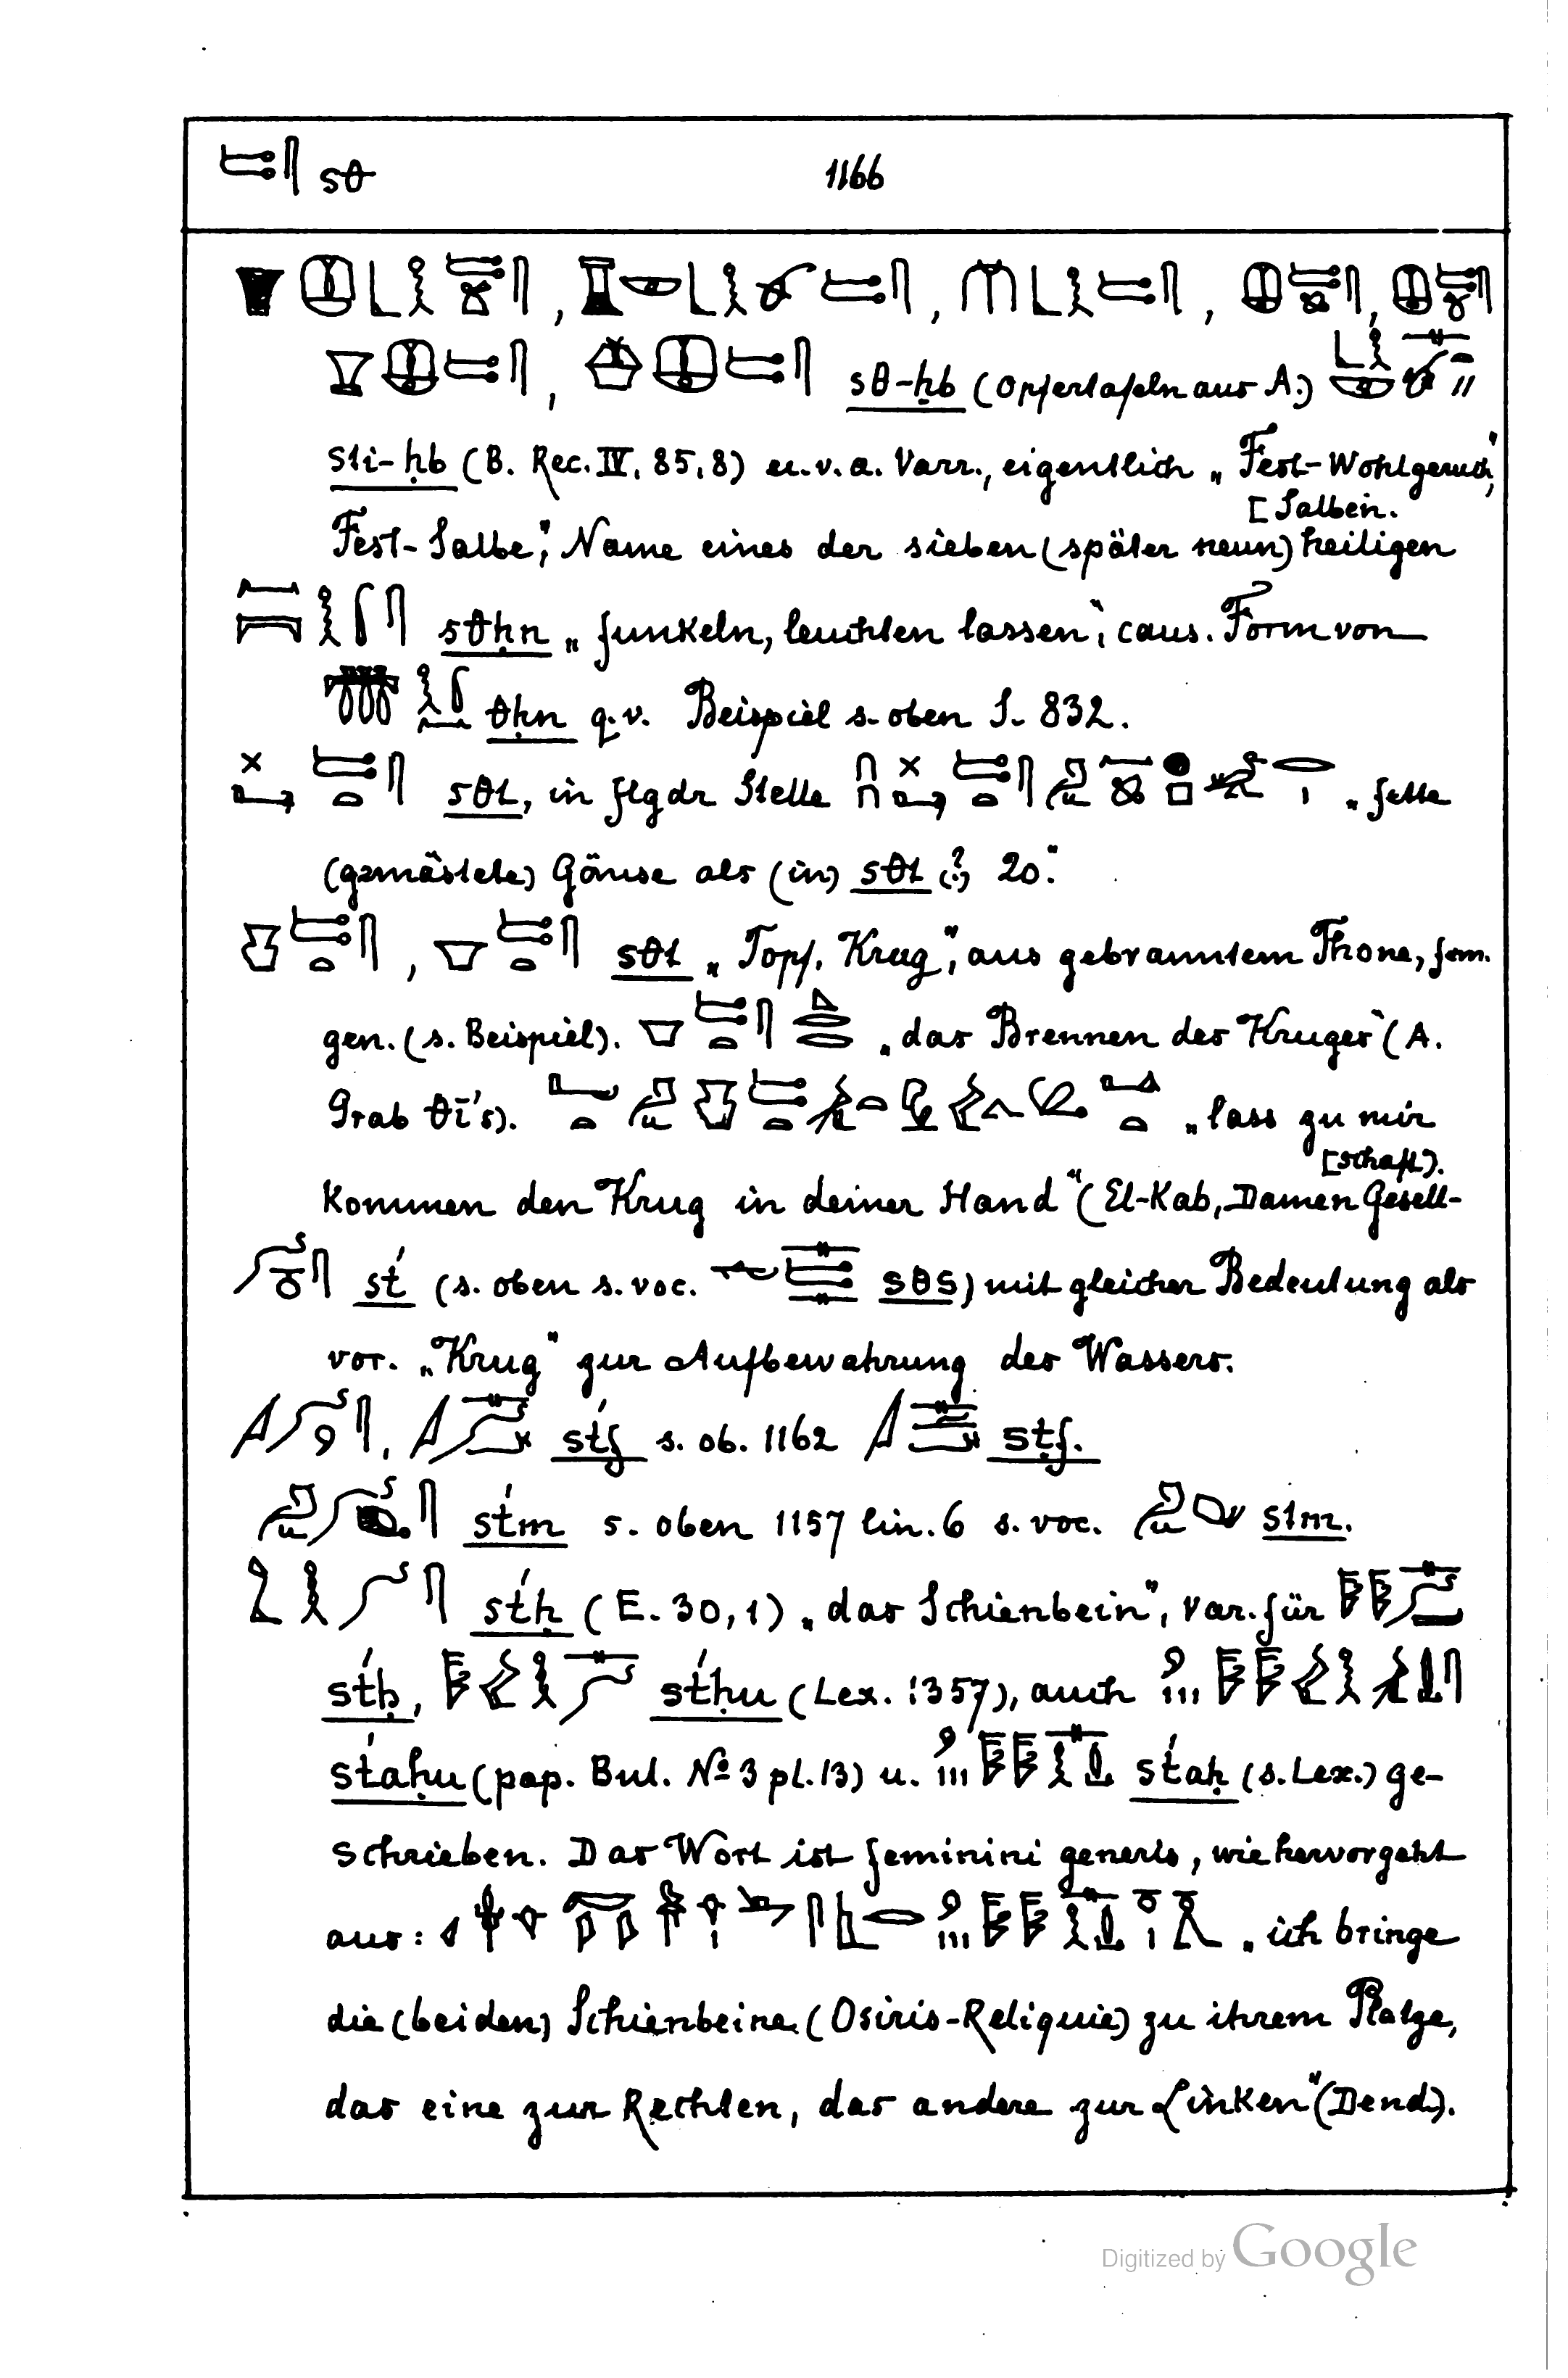 sθ 1166
sθ-ḥb (Opfertafeln aus A.)
sti-ḥb (B. Rec. IV, 85, 8) u. v. a. Varr., eigentlich „Fest-Wohlgeruch,"
[Salben.
Fest-Salbe", Name eines der sieben (später neun) heiligen
sθḥn „funkeln, leuchten lassen", caus. Form von
θḥn q. v. Beispiel s. oben S. 832.
sθt, in flgdr Stelle „fette
(gemästete) Gänse als (in) sθt (?) 20."
, sθt „Topf, Krug", aus gebranntem Thone, fem.
gen. (s. Beispiel). „das Brennen des Kruges" (A.
Grab θī's). „lass zu mir
[schaft).
kommen den Krug in deiner Hand" (El-Kab, Damen Gesell-
sť (s. oben s. voc. sθs) mit gleicher Bedeutung als
vor. „Krug" zur Aufbewahrung des Wassers.
, sťf s. ob. 1162 sṭf.
sťm s. oben 1157 lin. 6 s. voc. stm.
sťḥ (E. 30, 1) „das Schienbein", var. für
sťḥ, sťḥu (Lex. 1357), auch
sťaḥu (pap. Bul. No 3 pl. 13) u. sťaḥ (s. Lex.) ge-
schrieben. Das Wort ist feminini generis, wie hervorgeht
aus: „ich bringe
die (beiden) Schienbeine (Osiris-Reliquie) zu ihrem Platze,
das eine zur Rechten, das andere zur Linken" (Dend.).
Digitized by Google